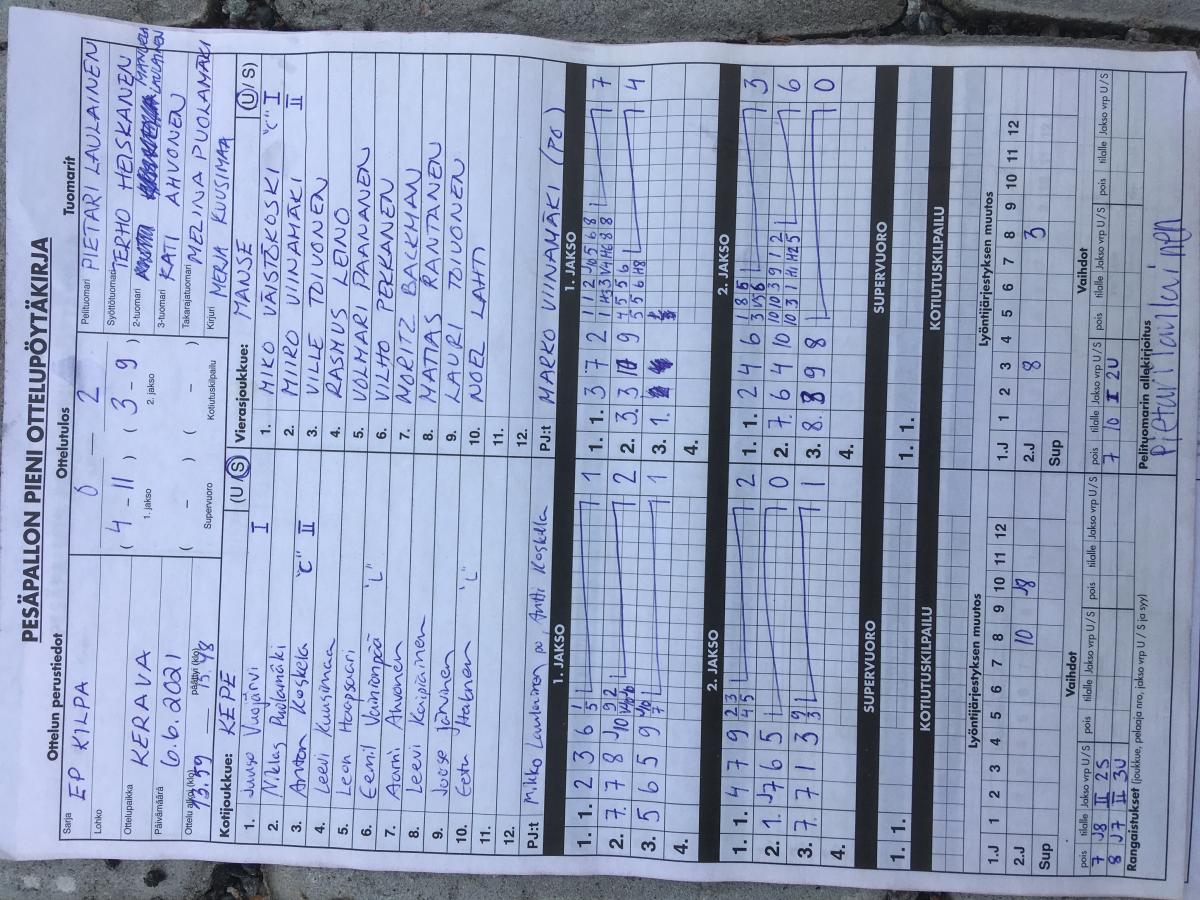 PESÄPALLON PIENI OTTELUPÖYTÄKIRJA
Ottelun perustiedot
Ottelutulos
Tuomarit
Sarja
EP KILPA
Lohko
Ottelupaikka
KERAVA
Päivämäärä
6.6.2021
Ottelu alkoi (klo)
13.59
päättyi (klo)
0 — 2
( 4 - 11 ) ( 3 - 9 )
1. jakso 2. jakso
( - ) ( - )
Supervuoro Kotiutuskilpailu
Pelituomari PIETARI LAULAINEN
Syöttötuomari TERHO HEISKANEN
2-tuomari MANUELA LAULAINEN
3-tuomari KATI AHVONEN
Takarajatuomari MELINA PUOLAMÄKI
Kirjuri MERJA KUUSIMAA
Kotijoukkue: KEPE (U/S)
1. Juuso Vuojärvi I
2. Niklas Puolamäki
3. Anton Koskela "C" II
4. Leevi Kuusimaa
5. Leon Haapsaari
6. Eemil Vainionpää "L"
7. Aarni Ahvonen
8. Leevi Karpiainen
9. Joose Järvinen
10. Eetu Hakanen "L"
11.
12.
PJ:t Mikko Laulainen po, Antti Koskela
Vierasjoukkue: MANSE (U/S)
1. MIKO VÄISTÖKOSKI "C" I
2. MIIRO VIINAMÄKI II
3. VILLE TOIVONEN
4. RASMUS LEINO
5. VOLMARI PAANANEN
6. VILHO PEKKANEN
7. MORITZ BACKMAN
8. MATIAS RANTANEN
9. LAURI TOIVONEN
10. NOEL LAHTI
11.
12.
PJ:t MARKO VIINAMÄKI (PO)
1. JAKSO
1. 1. 2 3 6 1 5 1
2. 7. 7 8 2
3. 5 6 5 9 1
4.
1. JAKSO
1. 1. 3 7 2 7
2. 3. 3 9 4
3. 1.
4.
2. JAKSO
1. 1. 4 7 9 2
2. 1. J7 6 5 0
3. 7. 7 1 3 1
4.
2. JAKSO
1. 1. 2 4 6 3
2. 7. 6 4 10 6
3. 8. 8 9 8 0
4.
SUPERVUORO
1. 1.
SUPERVUORO
1. 1.
KOTIUTUSKILPAILU
KOTIUTUSKILPAILU
Lyöntijärjestyksen muutos
1 2 3 4 5 6 7 8 9 10 11 12
1.J
2.J 10 J8
Sup
Lyöntijärjestyksen muutos
1 2 3 4 5 6 7 8 9 10 11 12
1.J
2.J 8 3
Sup
Vaihdot
pois tilalle Jakso vrp U/S pois tilalle Jakso vrp U/S pois tilalle Jakso vrp U/S
7 J8 II 2S
8 J7 II 3U
Vaihdot
pois tilalle Jakso vrp U/S pois tilalle Jakso vrp U/S pois tilalle Jakso vrp U/S
7 10 I 2U
Rangaistukset (joukkue, pelaaja nro, jakso vrp U / S ja syy)
Pelituomarin allekirjoitus
Pietari Laulainen